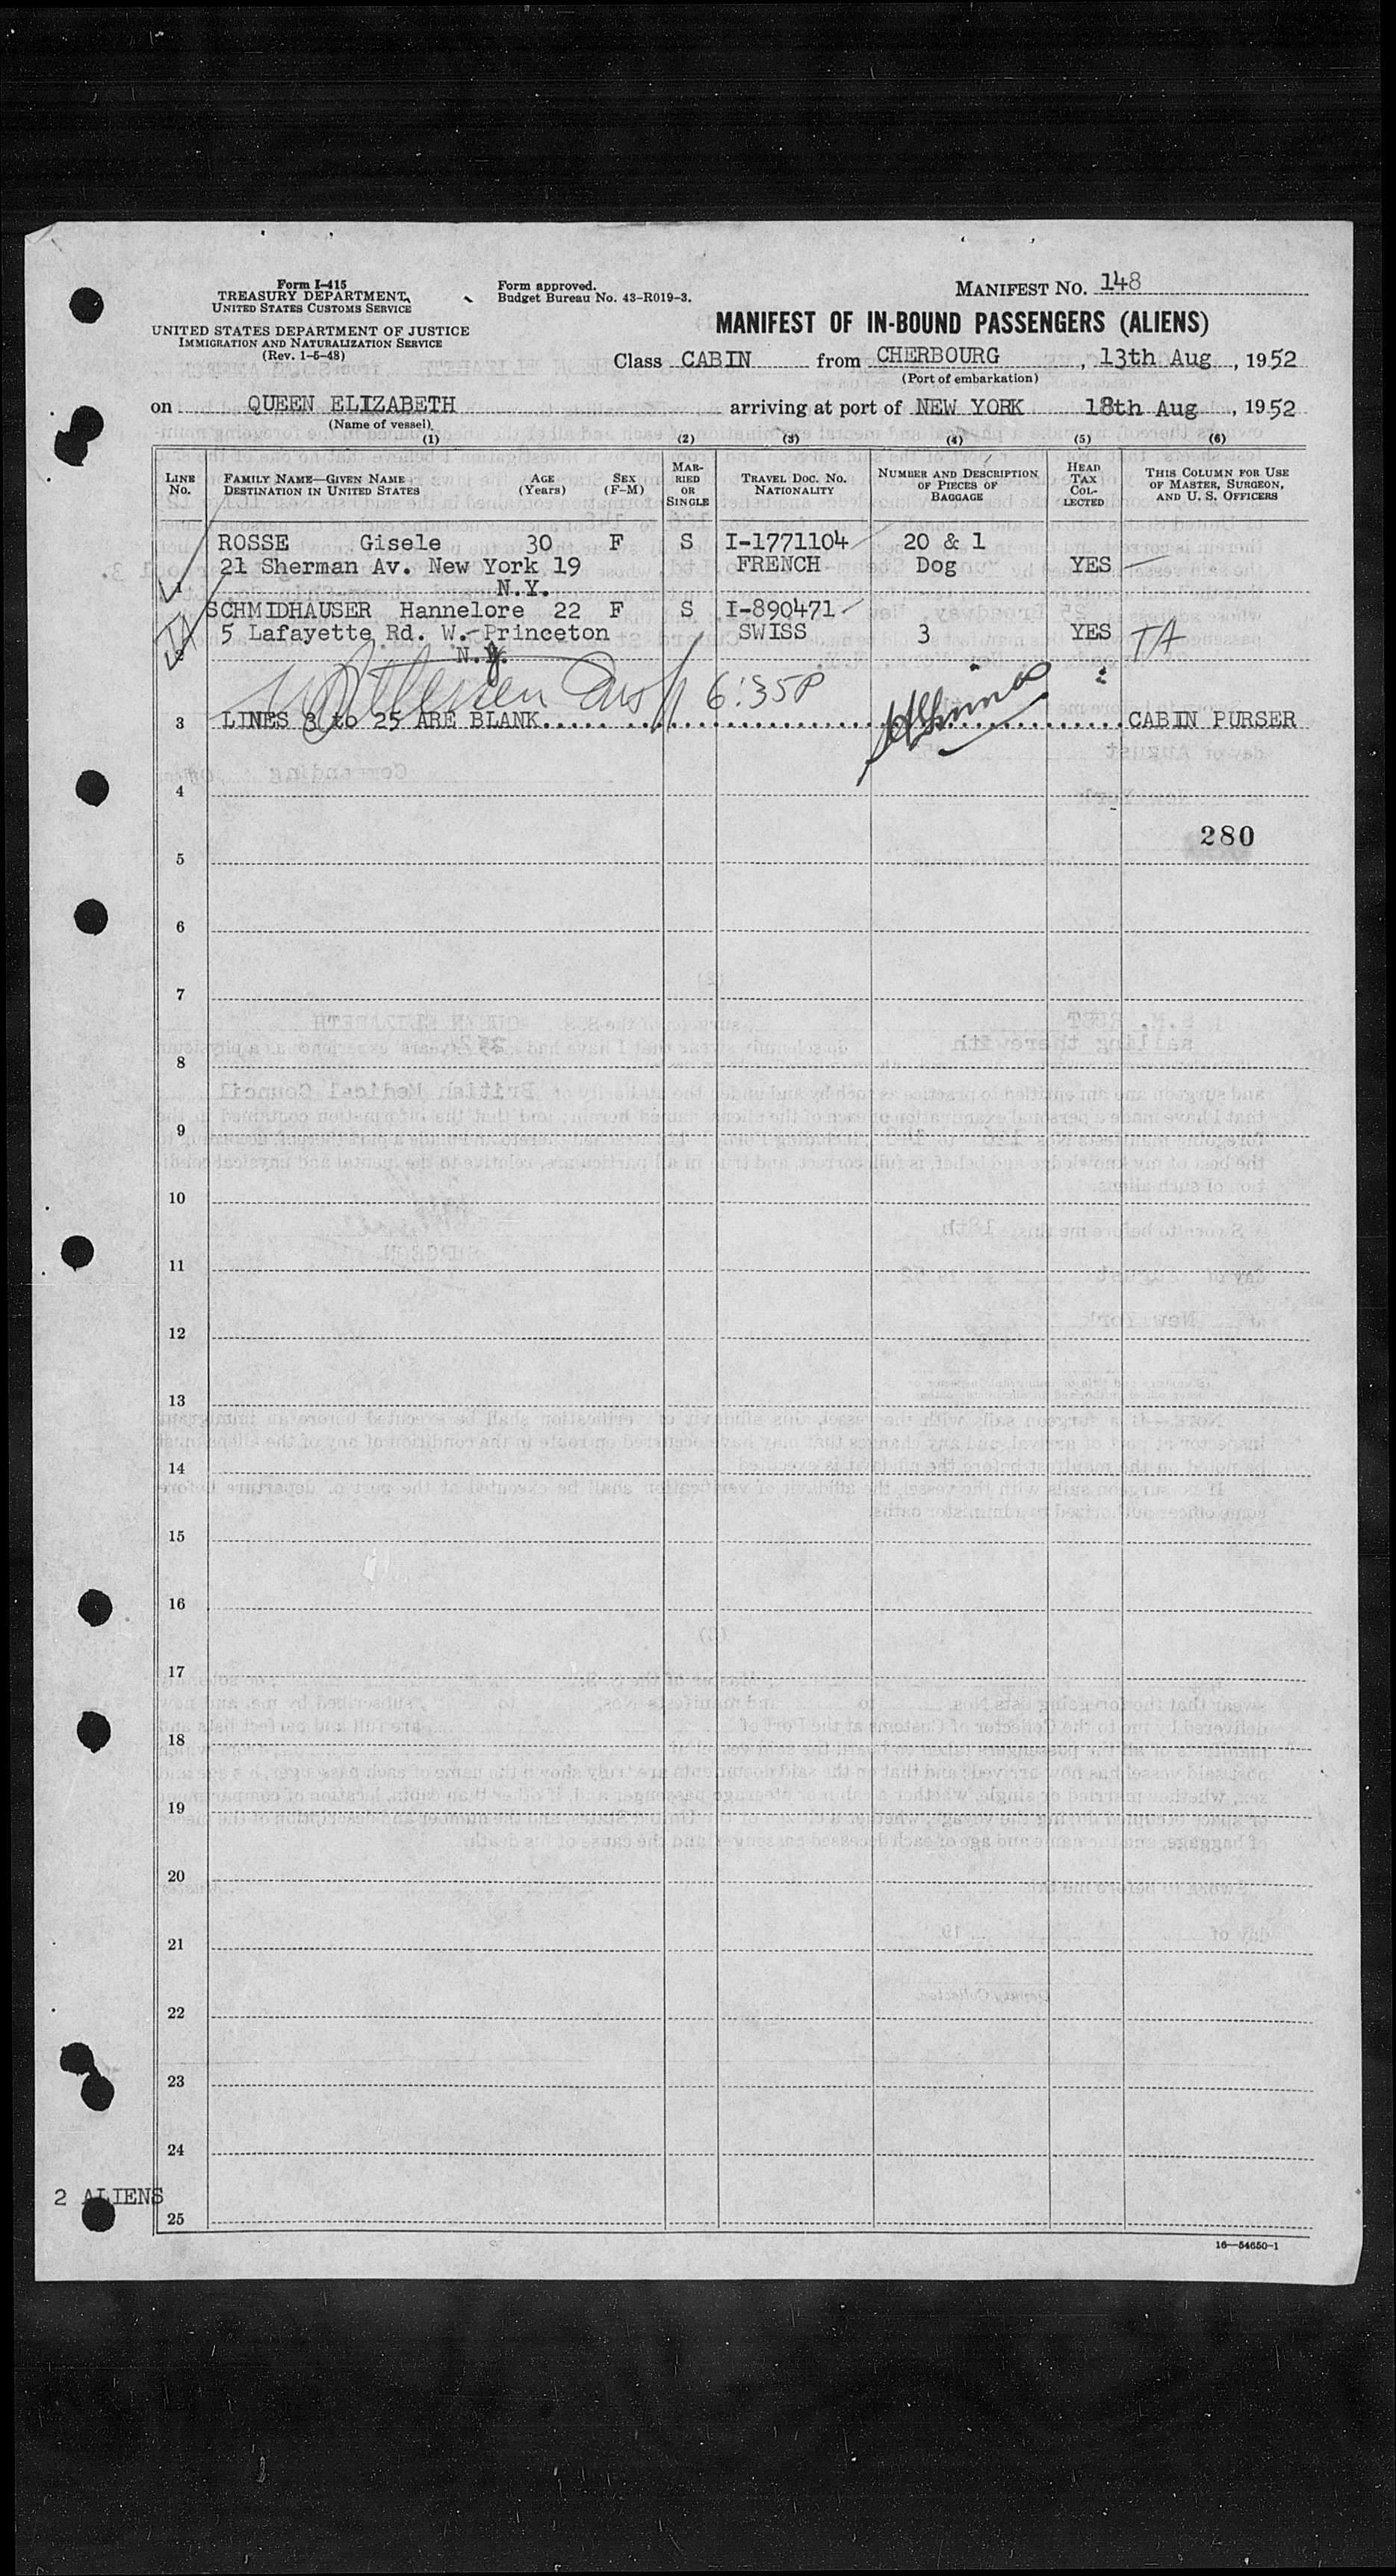 Form I-415
TREASURY DEPARTMENT,
UNITED STATES CUSTOMS SERVICE
UNITED STATES DEPARTMENT OF JUSTICE
IMMIGRATION AND NATURALIZATION SERVICE
(Rev. 1-5-48)
Form approved.
Budget Bureau No. 43-R019-3.
MANIFEST NO. 148
MANIFEST OF IN-BOUND PASSENGERS (ALIENS)
Class CABIN from CHERBOURG, 13th Aug, 1952
(Port of embarkation)
on QUEEN ELIZABETH arriving at port of NEW YORK 18th Aug, 1952
(Name of vessel)
(1) (2) (3) (4) (5) (6)
LINE No. FAMILY NAME—GIVEN NAME DESTINATION IN UNITED STATES AGE (Years) SEX (F-M) MARRIED OR SINGLE TRAVEL DOC. NO. NATIONALITY NUMBER AND DESCRIPTION OF PIECES OF BAGGAGE HEAD TAX COLLECTED THIS COLUMN FOR USE OF MASTER, SURGEON, AND U. S. OFFICERS
ROSSE Gisele 30 F S I-1771104 20 & 1
21 Sherman Av. New York 19 FRENCH Dog YES —
1 N.Y.
SCHMIDHAUSER Hannelore 22 F S I-890471
5 Lafayette Rd. W.-Princeton SWISS 3 YES TA
2 N.J.
6:35P
3 LINES 3 to 25 ARE BLANK. CABIN PURSER
4
280
5
6
7
8
9
10
11
12
13
14
15
16
17
18
19
20
21
22
23
24
2 ALIENS
25
16—54650-1